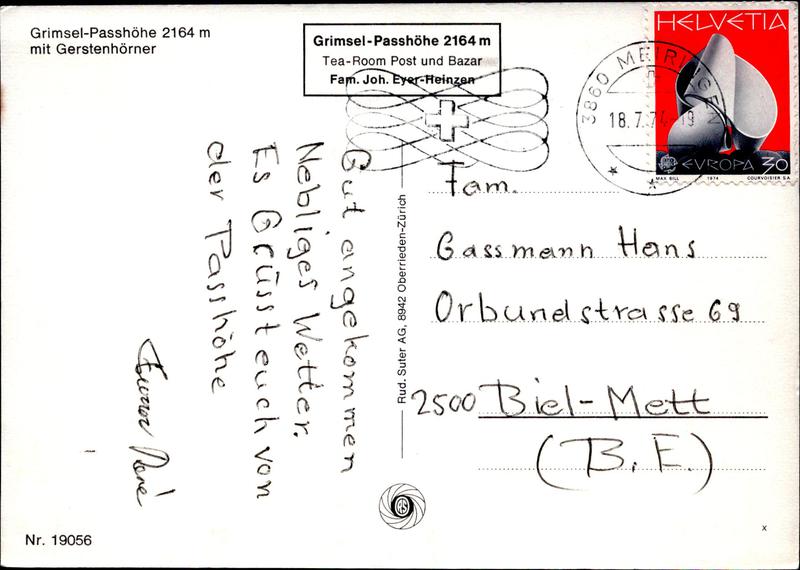 Grimsel-Passhöhe 2164 m
mit Gerstenhörner
Grimsel-Passhöhe 2164 m
Tea-Room Post und Bazar
Fam. Joh. Eyer-Heinzen
HELVETIA
EVROPA 30
MAX BILL 1974 COURVOISIER SA
3860 MEIRINGEN
18.7.74-19
Gut angekommen
Nebliges Wetter.
Es Grüsst euch von
der Passhöhe
René
Rud. Suter AG, 8942 Oberrieden-Zürich
Fam.
Gassmann Hans
Orbundstrasse 69
2500 Biel-Mett
(B.E.)
Nr. 19056
x